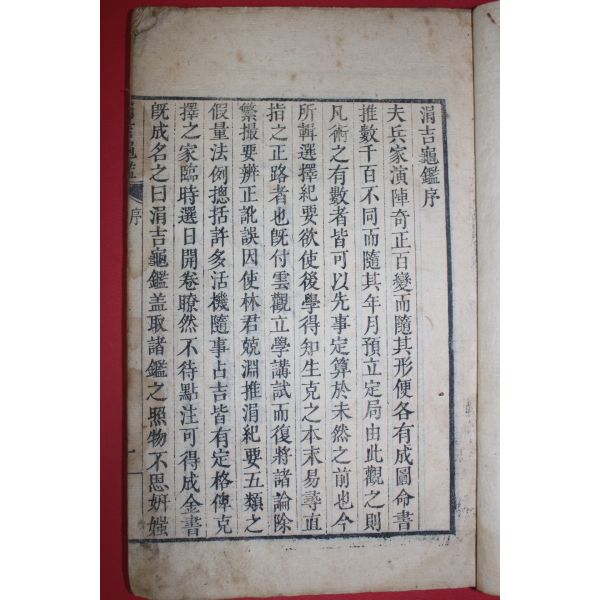 涓吉龜鑑序
夫兵家演陣奇正百變而隨其形便各有成圖命書
推數千百不同而隨其年月預立定局由此觀之則
凡術之有數者皆可以先事定算於未然之前也今
所輯選擇紀要欲使後學得知生克之本末易尋直
指之正路者也旣付雲觀立學講試而復將諸論除
繁撮要辨正訛誤因使林君兢淵推涓紀要五類之
假量法例摠括許多活機隨事占吉皆有定格俾克
擇之家臨時選日開卷瞭然不待點注可得成金書
旣成名之曰涓吉龜鑑盖取諸鑑之照物不思妍媸
涓吉龜鑑 序 一